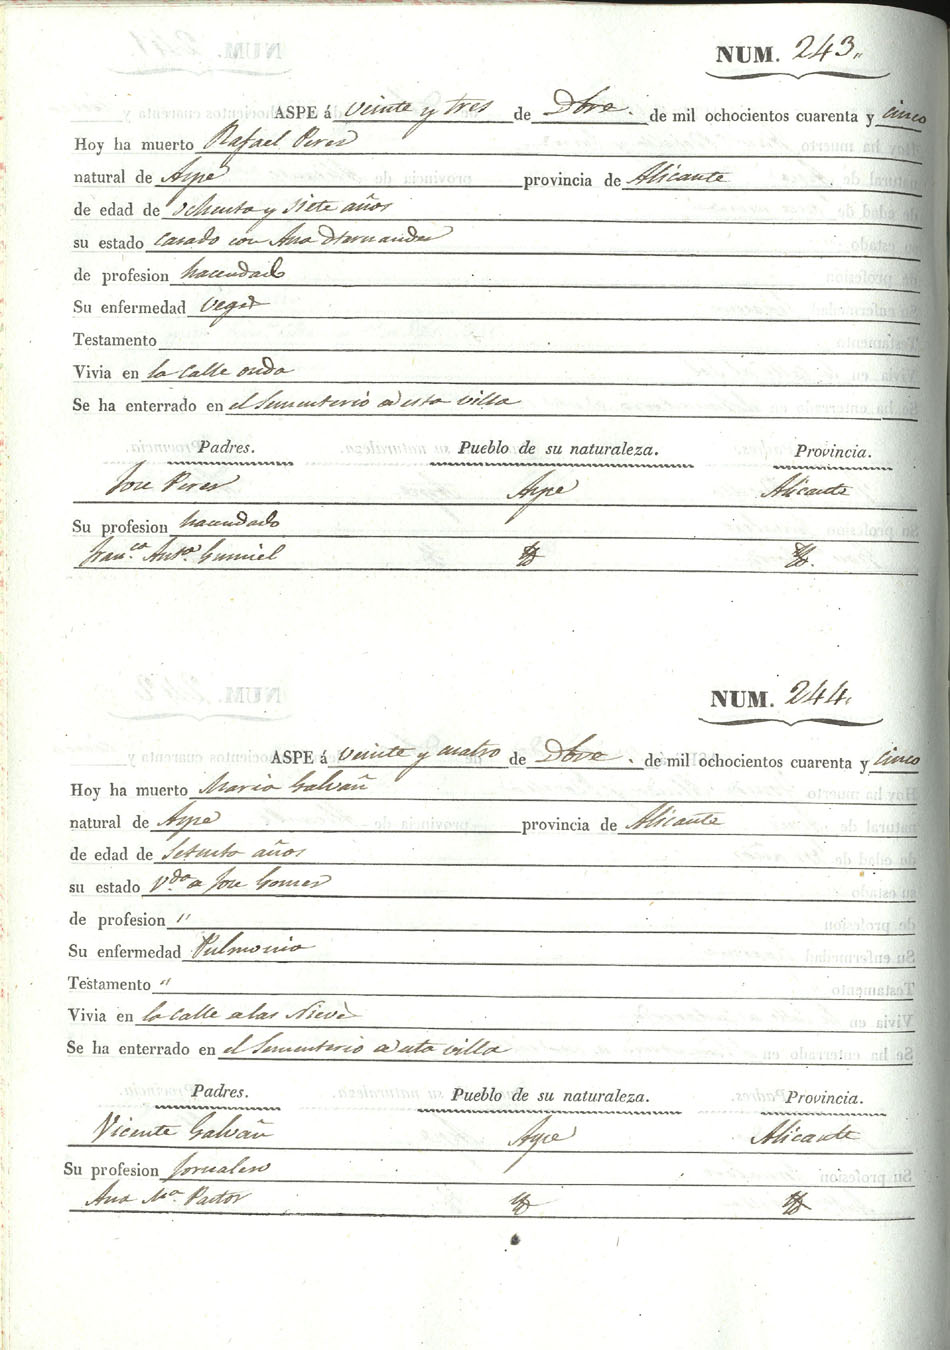 NUM. 243.
ASPE á veinte y tres de Dbre. de mil ochocientos cuarenta y cinco
Hoy ha muerto Rafael Peres
natural de Aspe provincia de Alicante
de edad de ochenta y siete años
su estado casado con Ana Hernandes
de profesion hacendado
Su enfermedad veges
Testamento
Vivia en la calle onda
Se ha enterrado en el Sementerio de esta villa
Padres. Pueblo de su naturaleza. Provincia.
Jose Peres Aspe Alicante
Su profesion hacendado
Fran.ca Ant.a Gumiel
NUM. 244.
ASPE á veinte y cuatro de Dbre. de mil ochocientos cuarenta y cinco
Hoy ha muerto Maria Galvañ
natural de Aspe provincia de Alicante
de edad de Setenta años
su estado V.da de Jose Gomes
de profesion "
Su enfermedad Pulmonia
Testamento "
Vivia en la calle de las Nieves
Se ha enterrado en el Sementerio de esta villa
Padres. Pueblo de su naturaleza. Provincia.
Vicente Galvañ Aspe Alicante
Su profesion Jornalero
Ana M.a Pastor